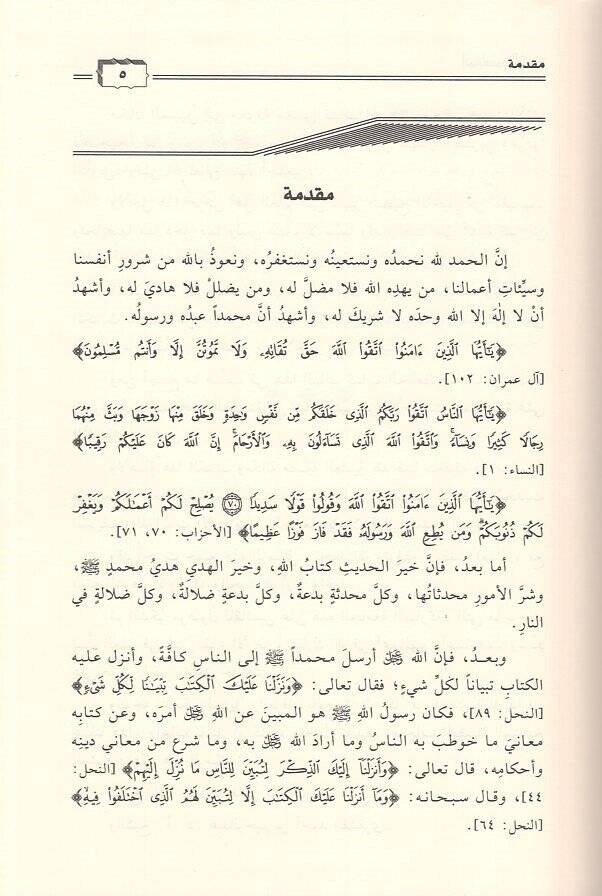 مقدمة
٥
مقدمة
إنَّ الحمد لله نحمدُه ونستعينُه ونستغفرُه، ونعوذُ بالله من شرورِ أنفسنا
وسيِّئاتِ أعمالنا، من يهدِه الله فلا مضلَّ له، ومن يضللْ فلا هاديَ له، وأشهدُ
أنْ لا إلٰهَ إلا الله وحدَه لا شريكَ له، وأشهدُ أنَّ محمداً عبدُه ورسولُه.
﴿يَٰٓأَيُّهَا ٱلَّذِينَ ءَامَنُوا۟ ٱتَّقُوا۟ ٱللَّهَ حَقَّ تُقَاتِهِۦ وَلَا تَمُوتُنَّ إِلَّا وَأَنتُم مُّسْلِمُونَ﴾
[آل عمران: ١٠٢].
﴿يَٰٓأَيُّهَا ٱلنَّاسُ ٱتَّقُوا۟ رَبَّكُمُ ٱلَّذِى خَلَقَكُم مِّن نَّفْسٍ وَٰحِدَةٍ وَخَلَقَ مِنْهَا زَوْجَهَا وَبَثَّ مِنْهُمَا
رِجَالًا كَثِيرًا وَنِسَآءً ۚ وَٱتَّقُوا۟ ٱللَّهَ ٱلَّذِى تَسَآءَلُونَ بِهِۦ وَٱلْأَرْحَامَ ۚ إِنَّ ٱللَّهَ كَانَ عَلَيْكُمْ رَقِيبًا﴾
[النساء: ١].
﴿يَٰٓأَيُّهَا ٱلَّذِينَ ءَامَنُوا۟ ٱتَّقُوا۟ ٱللَّهَ وَقُولُوا۟ قَوْلًا سَدِيدًا ٧٠ يُصْلِحْ لَكُمْ أَعْمَٰلَكُمْ وَيَغْفِرْ
لَكُمْ ذُنُوبَكُمْ ۗ وَمَن يُطِعِ ٱللَّهَ وَرَسُولَهُۥ فَقَدْ فَازَ فَوْزًا عَظِيمًا﴾ [الأحزاب: ٧٠، ٧١].
أما بعدُ، فإنَّ خيرَ الحديثِ كتابُ اللهِ، وخيرَ الهديِ هديُ محمدٍ ﷺ،
وشرَّ الأمورِ محدثاتُها، وكلَّ محدثةٍ بدعةٌ، وكلَّ بدعةٍ ضلالةٌ، وكلَّ ضلالةٍ في
النارِ.
وبعـدُ، فـإنَّ الله ﷻ أرسلَ محمداً ﷺ إلى الناسِ كافَّةً، وأنزل عليه
الكتابَ تبياناً لكلِّ شيءٍ؛ فقال تعالى: ﴿وَنَزَّلْنَا عَلَيْكَ ٱلْكِتَٰبَ تِبْيَٰنًا لِّكُلِّ شَىْءٍ﴾
[النحل: ٨٩]، فكان رسولُ اللهِ ﷺ هو المبينَ عن اللهِ ﷻ أمرَه، وعن كتابِه
معانيَ ما خوطبَ به الناسُ وما أرادَ الله ﷻ به، وما شرع من معاني دينِه
وأحكامِه، قال تعالى: ﴿وَأَنزَلْنَآ إِلَيْكَ ٱلذِّكْرَ لِتُبَيِّنَ لِلنَّاسِ مَا نُزِّلَ إِلَيْهِمْ﴾ [النحل:
٤٤]، وقال سبحانه: ﴿وَمَآ أَنزَلْنَا عَلَيْكَ ٱلْكِتَٰبَ إِلَّا لِتُبَيِّنَ لَهُمُ ٱلَّذِى ٱخْتَلَفُوا۟ فِيهِ﴾
[النحل: ٦٤].